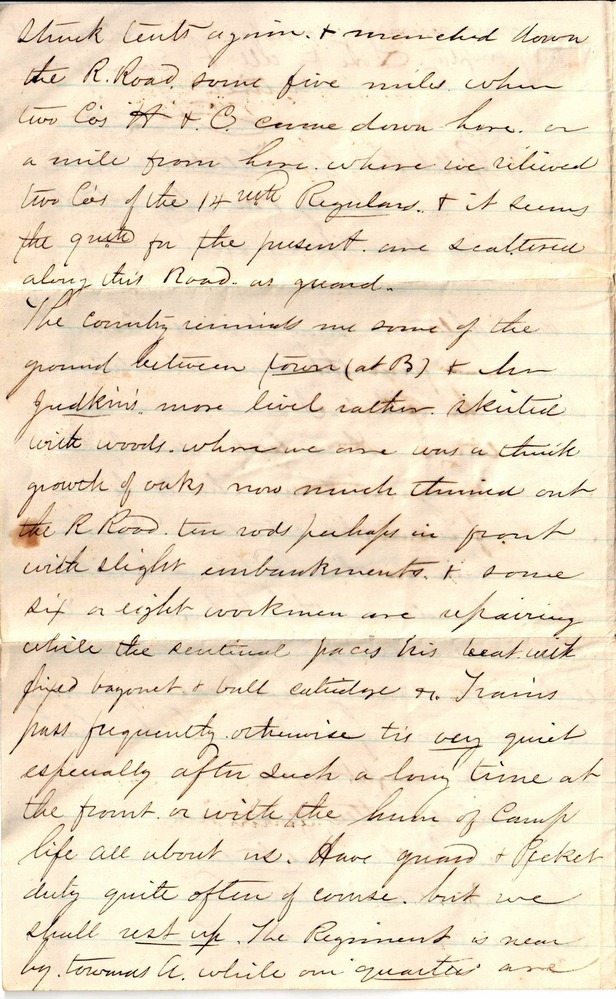 Struck tents again. & marched down
the R. Road. some five miles. when
two Co's H & C. came down here. or
a mile from here. where we relieved
two Co's of the 14 Regulars. & it seems
the for the present. are scattered
along this Road. as guard.
The country reminds me some of the
ground between town (at B) & Mr
Judkin's. more livel rather. skirted
with woods. where we are was a thick
growth of oaks now much thinned out
the R Road. ten rods perhaps in front
with slight embankments. & some
six or eight workmen are repairing
while the sentinal paces his beat with
fixed bayonet & ball catridge &c. Trains
pass frequently. otherwise tis very quiet
especially after such a long time at
the front. or with the hum of Camp
life all about us. Have guard & Picket
duty quite often of course. but we
shall rest up. The Regiment is near
by. towards A. while our quarters are